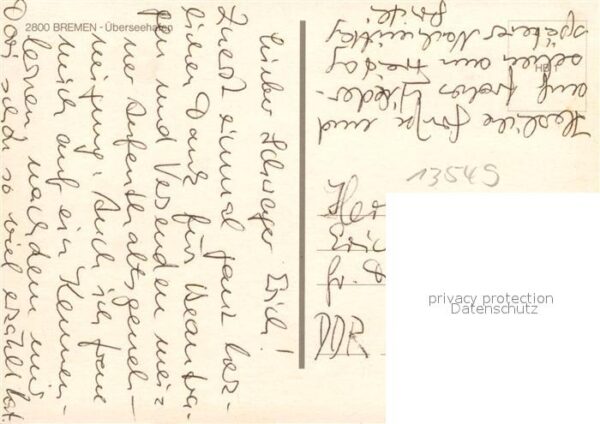 2800 BREMEN - Überseehafen
Lieber Schwager Erich!
Zuerst einmal ganz herz-
lichen Dank für Beantra-
gen und Versenden mei-
ner Aufenthaltsgeneh-
migung. Auch ich freue
mich auf ein Kennen-
lernen, nachdem mir
Dori schon so viel erzählt hat.
Herzliche Grüße und
auf frohes Wieder-
sehen am Freitag
späterer Nachmittag
13549
DDR
privacy protection
Datenschutz